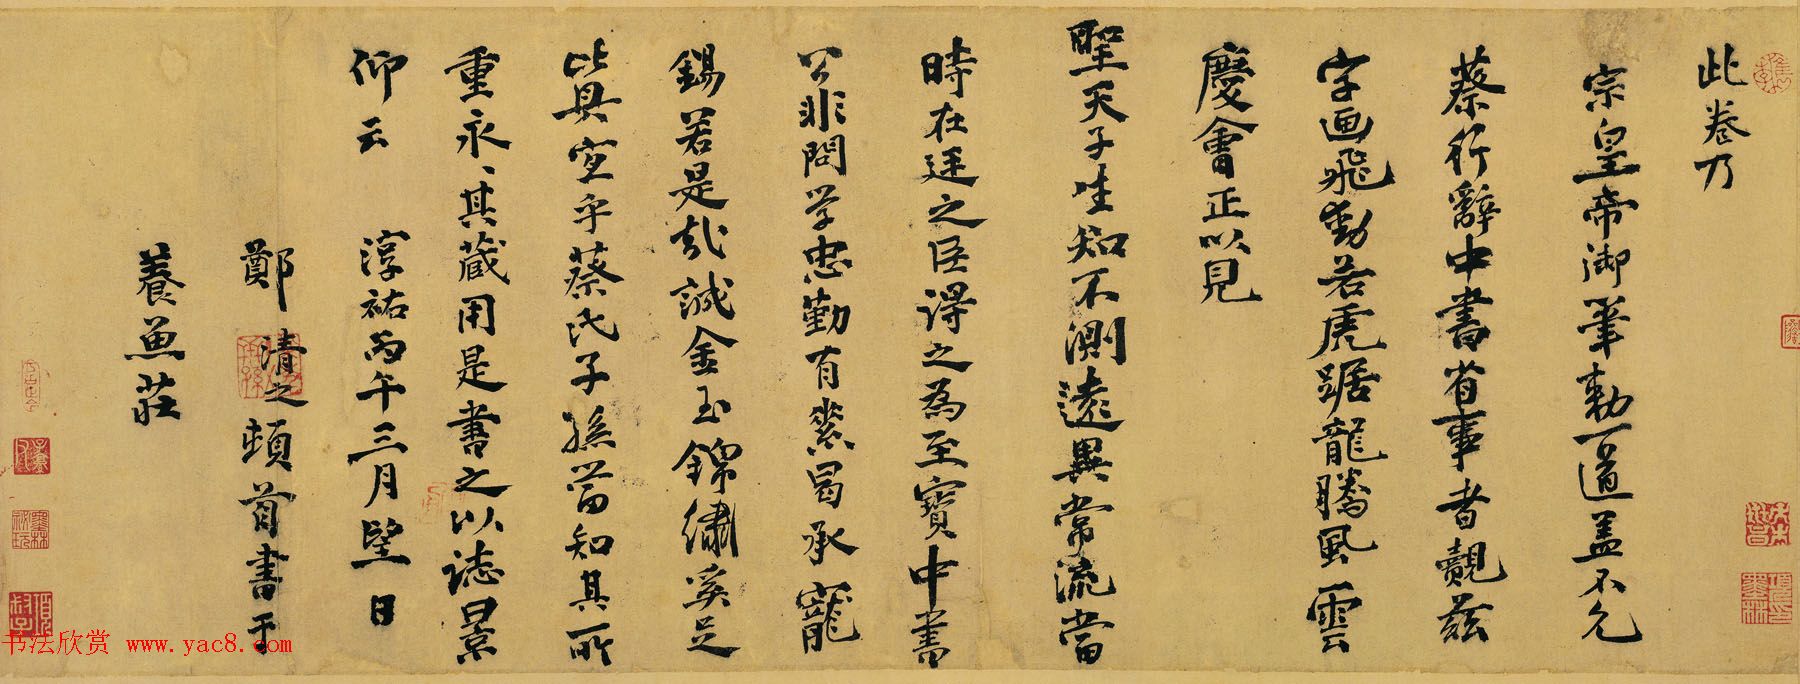 此卷乃
宗皇帝御筆勅一道盖不允
蔡行辭中書省事者覩兹
字画飛動若虎踞龍騰風雲
慶會正以見
聖天子生知不測遠異常流當
時在廷之臣得之為至寶中書
公非問学忠勤有素曷承寵
錫若是哉誠金玉錦繡奚足
比其宝乎蔡氏子孫當知其所
重永〻其藏用是書之以誌景
仰云 淳祐丙午三月望日
鄭清之頓首書于
養魚莊
书法欣赏 www.yac8.com